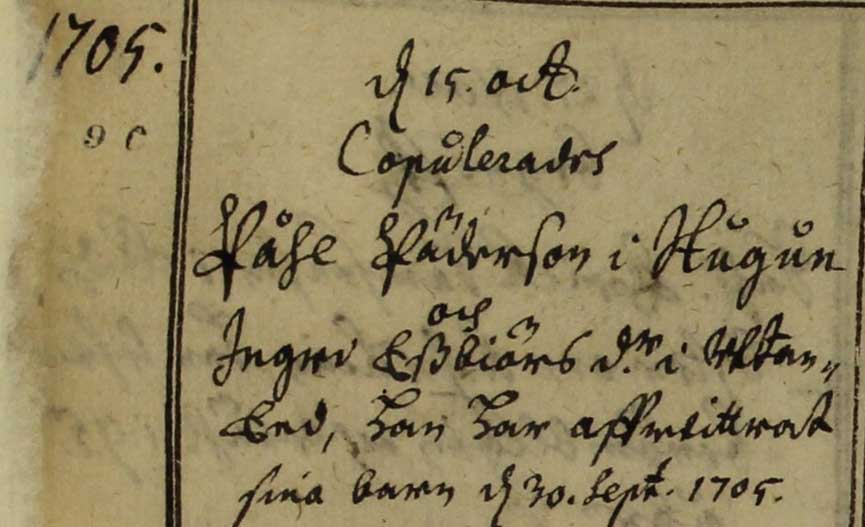 1705.
d. 15. oct.
Copulerades
Påhl Päderson i Stugun
och
Ingri Eßbiörs d.r i Utan=
Eed, han har affwittrat
sina barn d. 30. Sept. 1705.